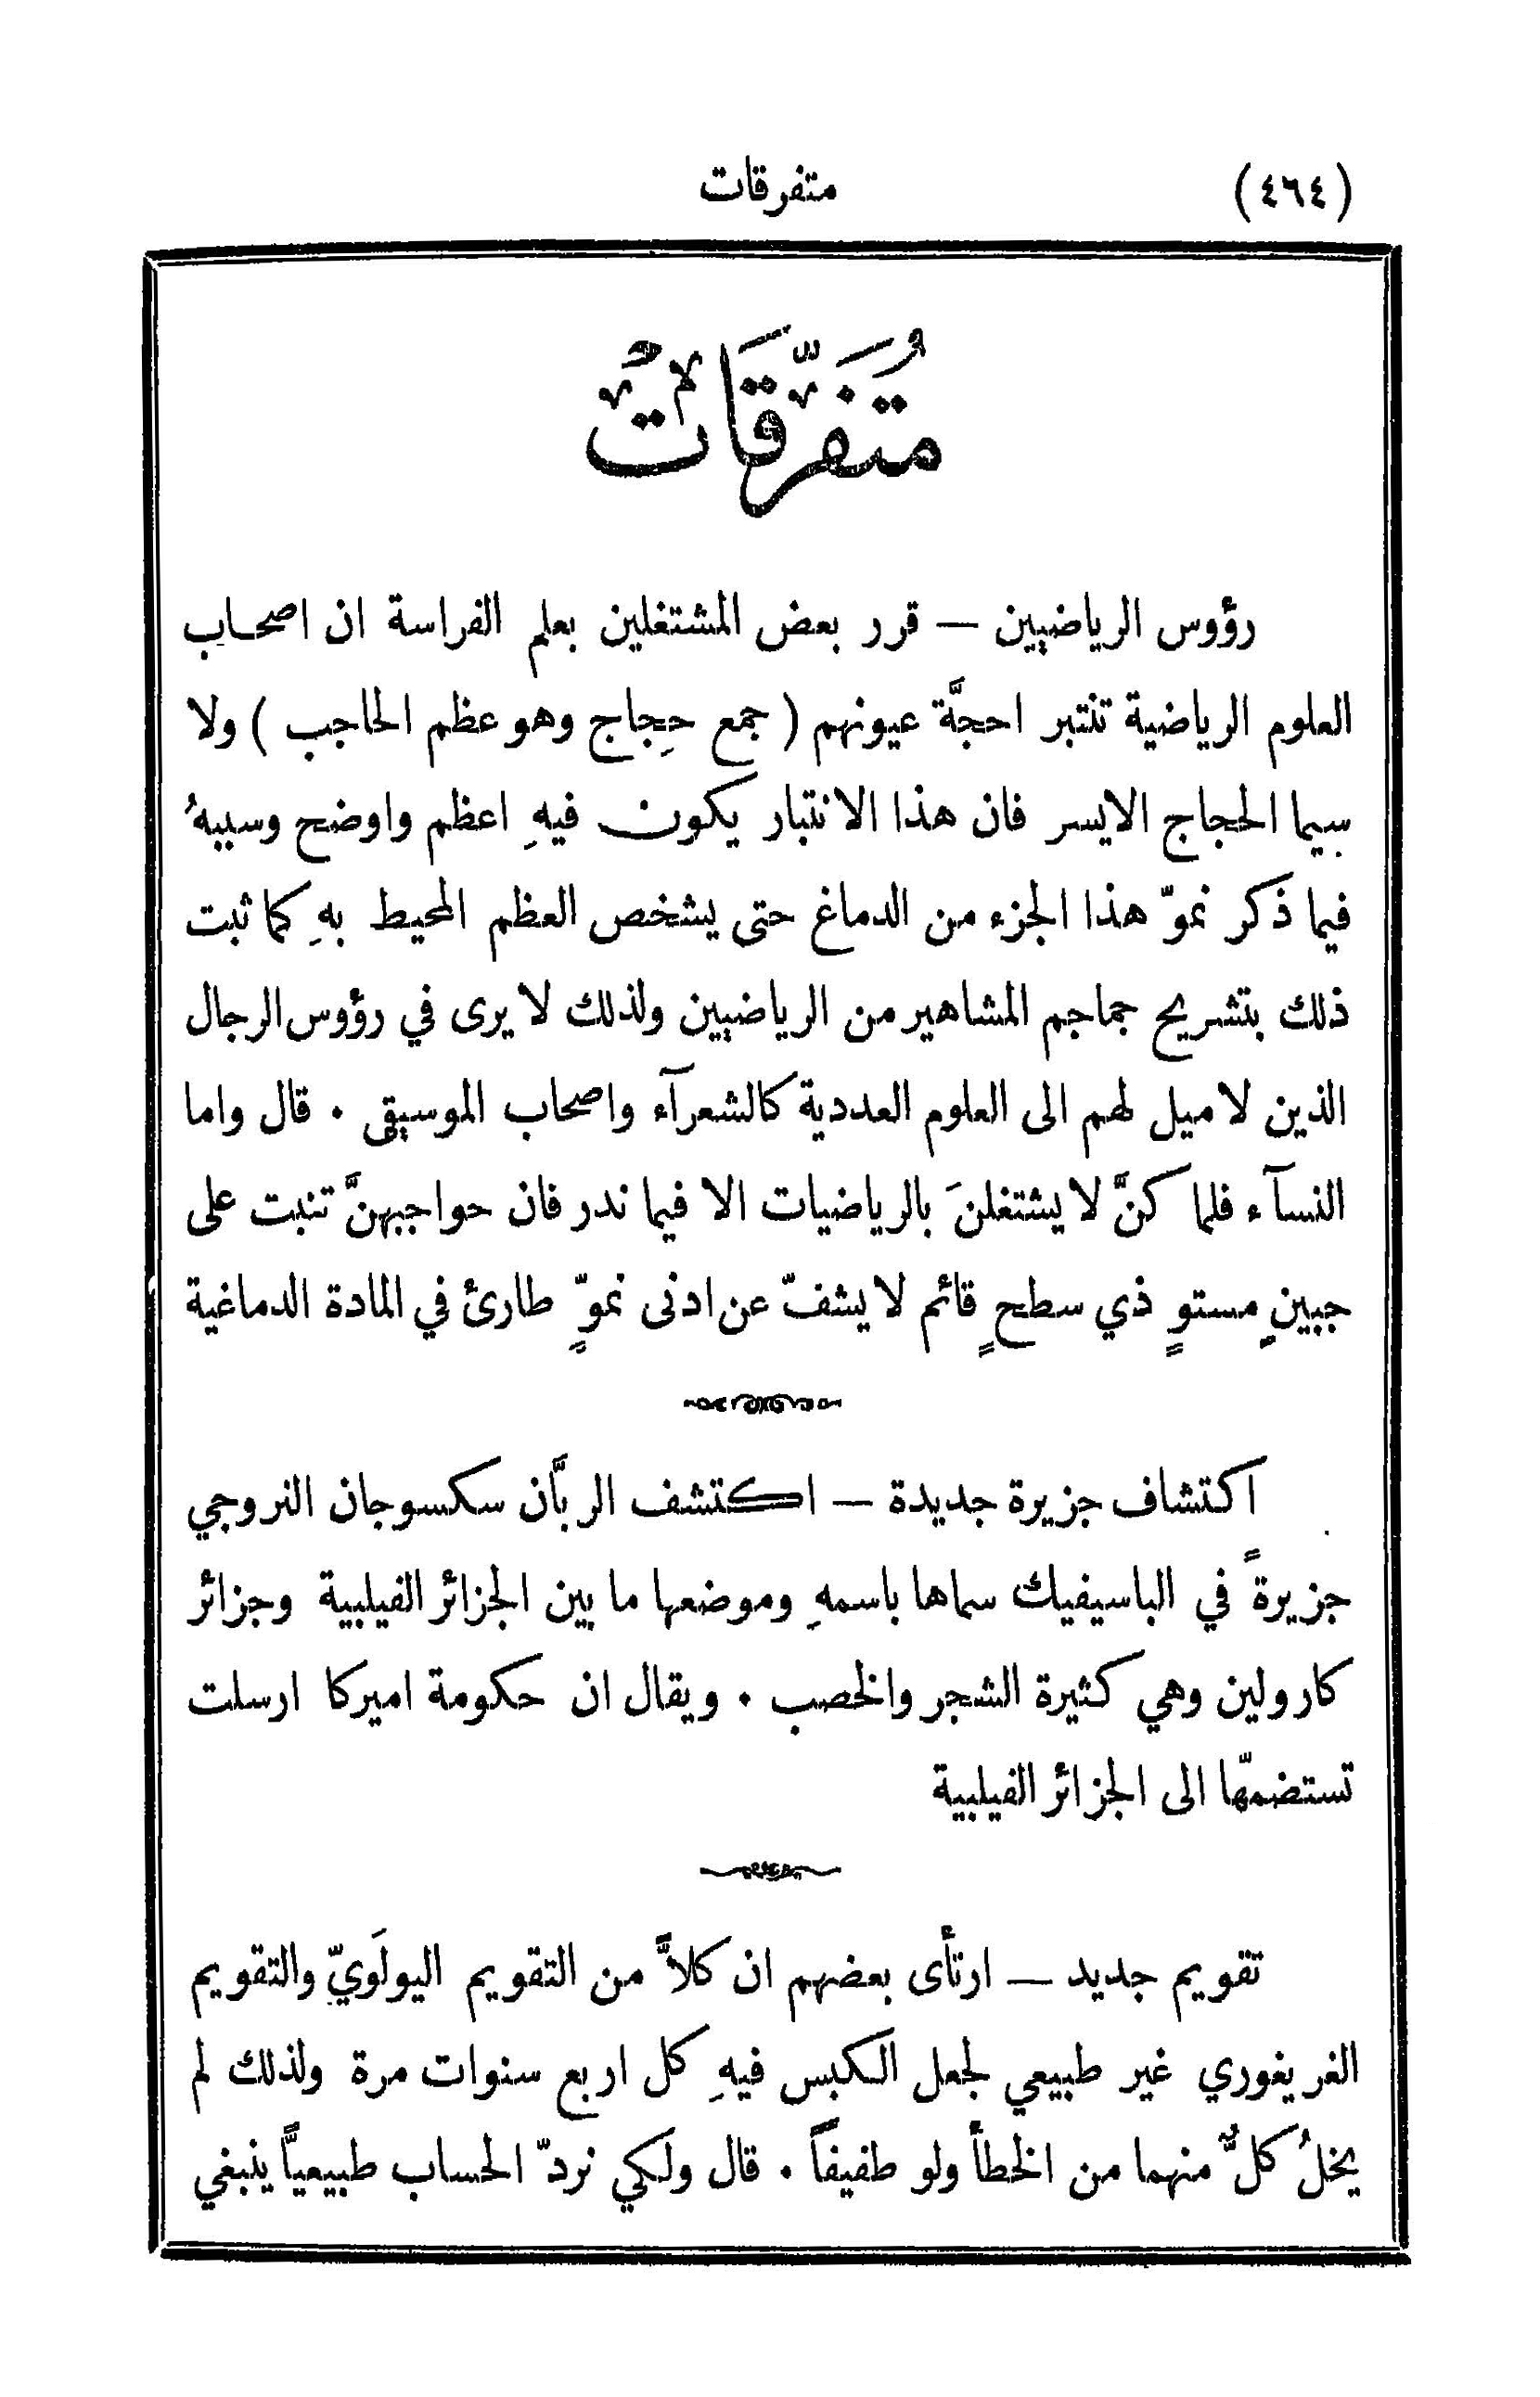 (٤٦٤) متفرقات
مُتَفَرِّقَاتٌ
رؤوس الرياضيين — قرر بعض المشتغلين بعلم الفراسة ان اصحاب
العلوم الرياضية تنتبر احجَّة عيونهم ( جمع حِجاج وهو عظم الحاجب ) ولا
سيما الحجاج الايسر فان هذا الانتبار يكون فيهِ اعظم واوضح وسببهُ
فيما ذكر نموّ هذا الجزء من الدماغ حتى يشخص العظم المحيط بهِ كما ثبت
ذلك بتشريح جماجم المشاهير من الرياضيين ولذلك لا يرى في رؤوس الرجال
الذين لا ميل لهم الى العلوم العددية كالشعرآء واصحاب الموسيقى . قال واما
النسآء فلما كنَّ لا يشتغلنَ بالرياضيات الا فيما ندر فان حواجبهنَّ تنبت على
جبينٍ مستوٍ ذي سطحٍ قائم لا يشفّ عن ادنى نموٍّ طارئ في المادة الدماغية
اكتشاف جزيرة جديدة — اكتشف الربَّان سكسوجان النروجي
جزيرةً في الباسيفيك سماها باسمهِ وموضعها ما بين الجزائر الفيلبية وجزائر
كارولين وهي كثيرة الشجر والخصب . ويقال ان حكومة اميركا ارسلت
تستضمّها الى الجزائر الفيلبية
تقويم جديد — ارتأى بعضهم ان كلاًّ من التقويم اليولَويّ والتقويم
الغريغوري غير طبيعي لجعل الكبس فيهِ كل اربع سنوات مرة ولذلك لم
يخلُ كلٌّ منهما من الخطأ ولو طفيفاً . قال ولكي نردّ الحساب طبيعيًّا ينبغي